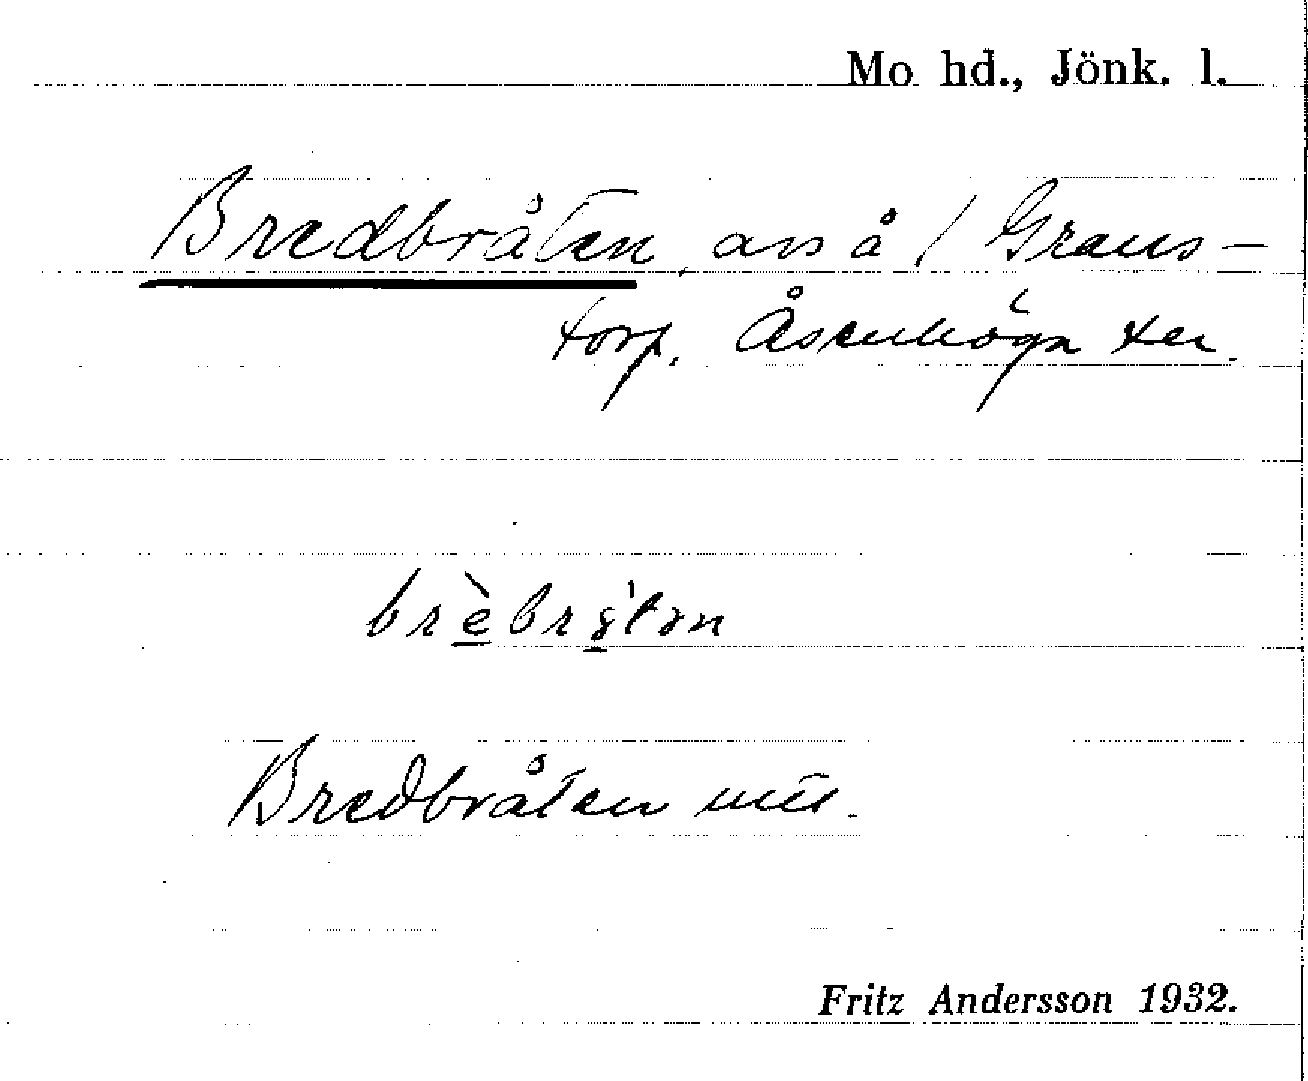 Mo hd., Jönk. l.
Bredbråten, avs å / Graus-
torp. Åsenhöga ter.
brèbråtən
Bredbråten mtl.
Fritz Andersson 1932.